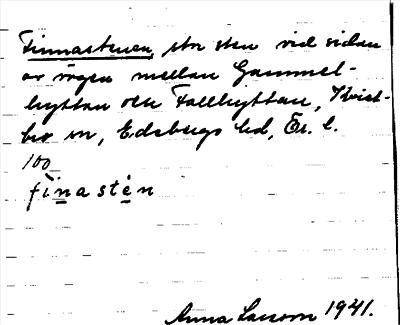 Finnastenen, stor sten vid sidan
av vägen mellan Gammel-
hyttan och Fallhyttan, Kvist-
bro sn, Edsbergs hd, Ör. l.
100
finastén
Anna Larsson 1941.